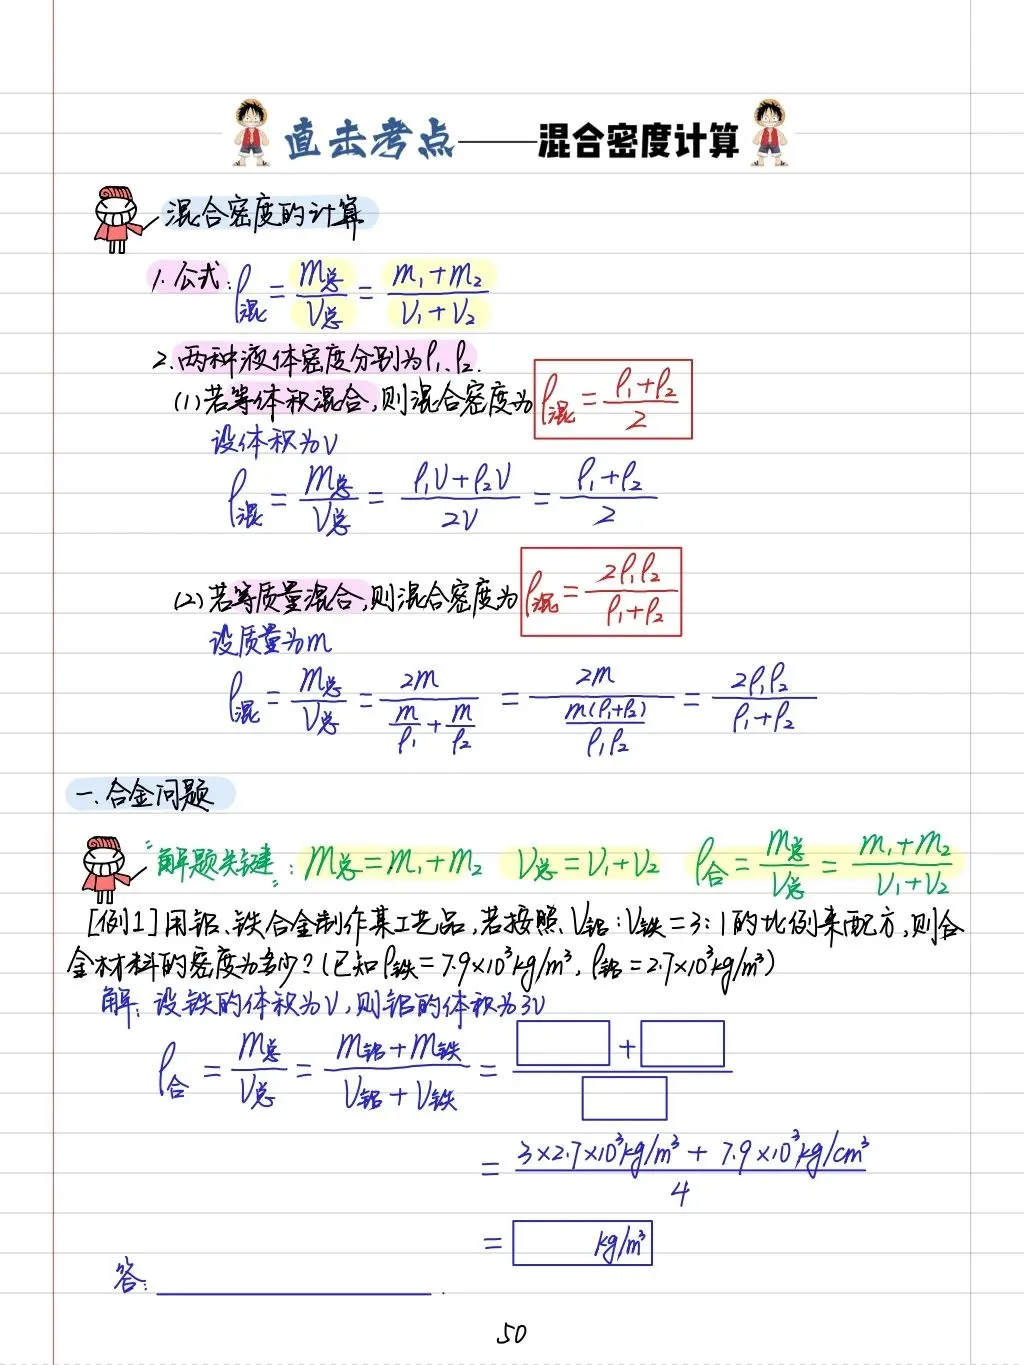 直击考点——混合密度计算
混合密度的计算
1. 公式: ρ混 = m总/V总 = (m₁+m₂)/(V₁+V₂)
2. 两种液体密度分别为ρ₁、ρ₂.
(1) 若等体积混合,则混合密度为 ρ混 = (ρ₁+ρ₂)/2
设体积为V
ρ混 = m总/V总 = (ρ₁V+ρ₂V)/2V = (ρ₁+ρ₂)/2
(2) 若等质量混合,则混合密度为 ρ混 = 2ρ₁ρ₂/(ρ₁+ρ₂)
设质量为m
ρ混 = m总/V总 = 2m/(m/ρ₁ + m/ρ₂) = 2m/(m(ρ₁+ρ₂)/ρ₁ρ₂) = 2ρ₁ρ₂/(ρ₁+ρ₂)
一. 合金问题
"解题关键": m总=m₁+m₂ V总=V₁+V₂ ρ合 = m总/V总 = (m₁+m₂)/(V₁+V₂)
[例1] 用铝、铁合金制作某工艺品,若按照V铝:V铁=3:1的比例来配方,则合
金材料的密度为多少?(已知ρ铁=7.9×10³kg/m³, ρ铝=2.7×10³kg/m³)
解: 设铁的体积为V,则铝的体积为3V
ρ合 = m总/V总 = (m铝+m铁)/(V铝+V铁) = +
= (3×2.7×10³kg/m³ + 7.9×10³kg/cm³)/4
= kg/m³
答: .
50